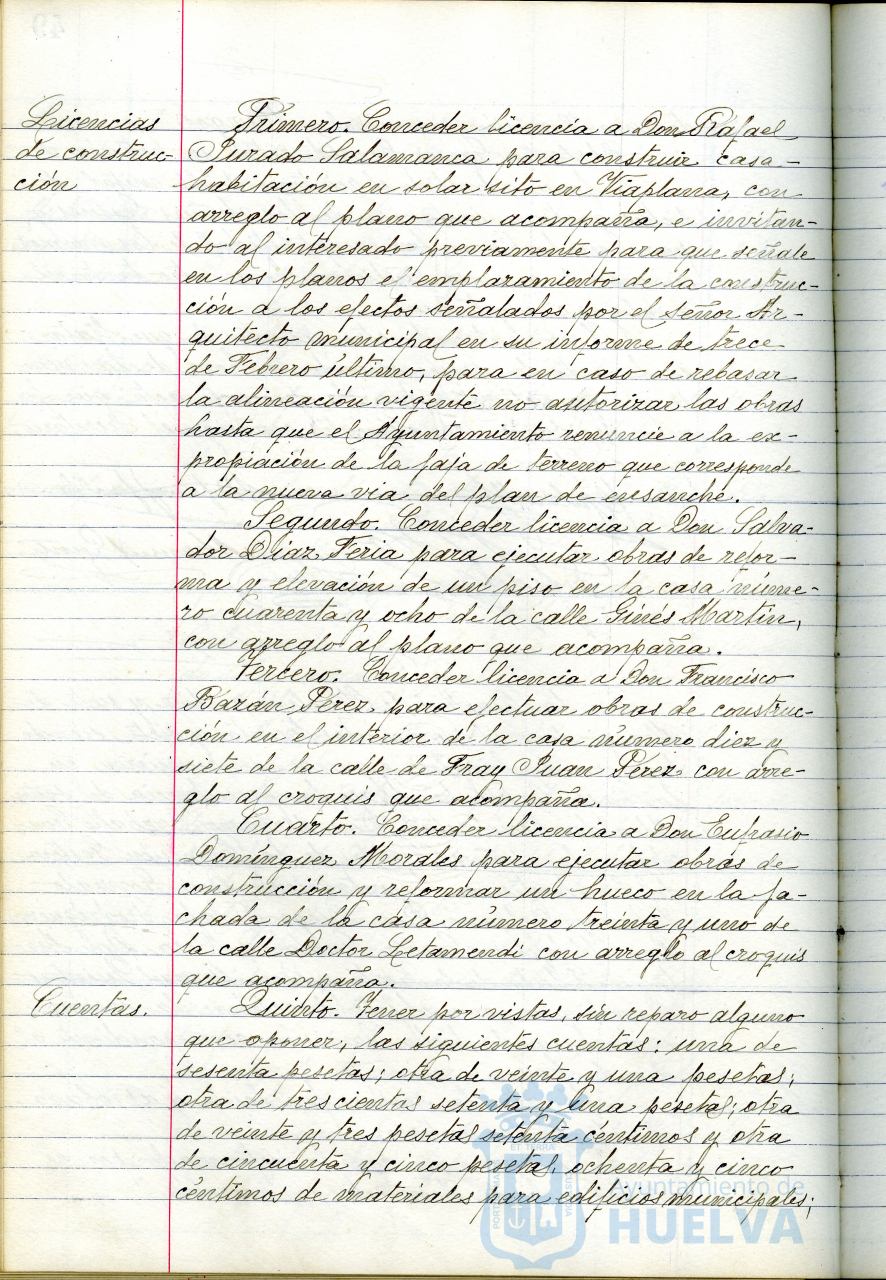 Licencias
de construc-
ción
Primero. Conceder licencia a Don Rafael
Jurado Salamanca para construir casa-
habitación en solar sito en Viaplana, con
arreglo al plano que acompaña, e invitan-
do al interesado previamente para que señale
en los planos el emplazamiento de la construc-
ción a los efectos señalados por el señor Ar-
quitecto municipal en su informe de trece
de Febrero último, para en caso de rebasar
la alineación vigente no autorizar las obras
hasta que el Ayuntamiento renuncie a la ex-
propiación de la faja de terreno que corresponde
a la nueva via del plan de ensanche.
Segundo. Conceder licencia a Don Salva-
dor Díaz Feria para ejecutar obras de refor-
ma y elevación de un piso en la casa núme-
ro cuarenta y ocho de la calle Ginés Martín,
con arreglo al plano que acompaña.
Tercero. Conceder licencia a Don Francisco
Bazán Pérez para efectuar obras de construc-
ción en el interior de la casa número diez y
siete de la calle de Fray Juan Pérez con arre-
glo al croquis que acompaña.
Cuarto. Conceder licencia a Don Eufrasio
Domínguez Morales para ejecutar obras de
construcción y reformar un hueco en la fa-
chada de la casa número treinta y uno de
la calle Doctor Letamendi con arreglo al croquis
que acompaña.
Cuentas.
Quinto. Tener por vistas, sin reparo alguno
que oponer, las siguientes cuentas: una de
sesenta pesetas; otra de veinte y una pesetas;
otra de trescientas setenta y una pesetas; otra
de veinte y tres pesetas setenta céntimos y otra
de cincuenta y cinco pesetas ochenta y cinco
céntimos de materiales para edificios municipales;
Ayuntamiento de
HUELVA